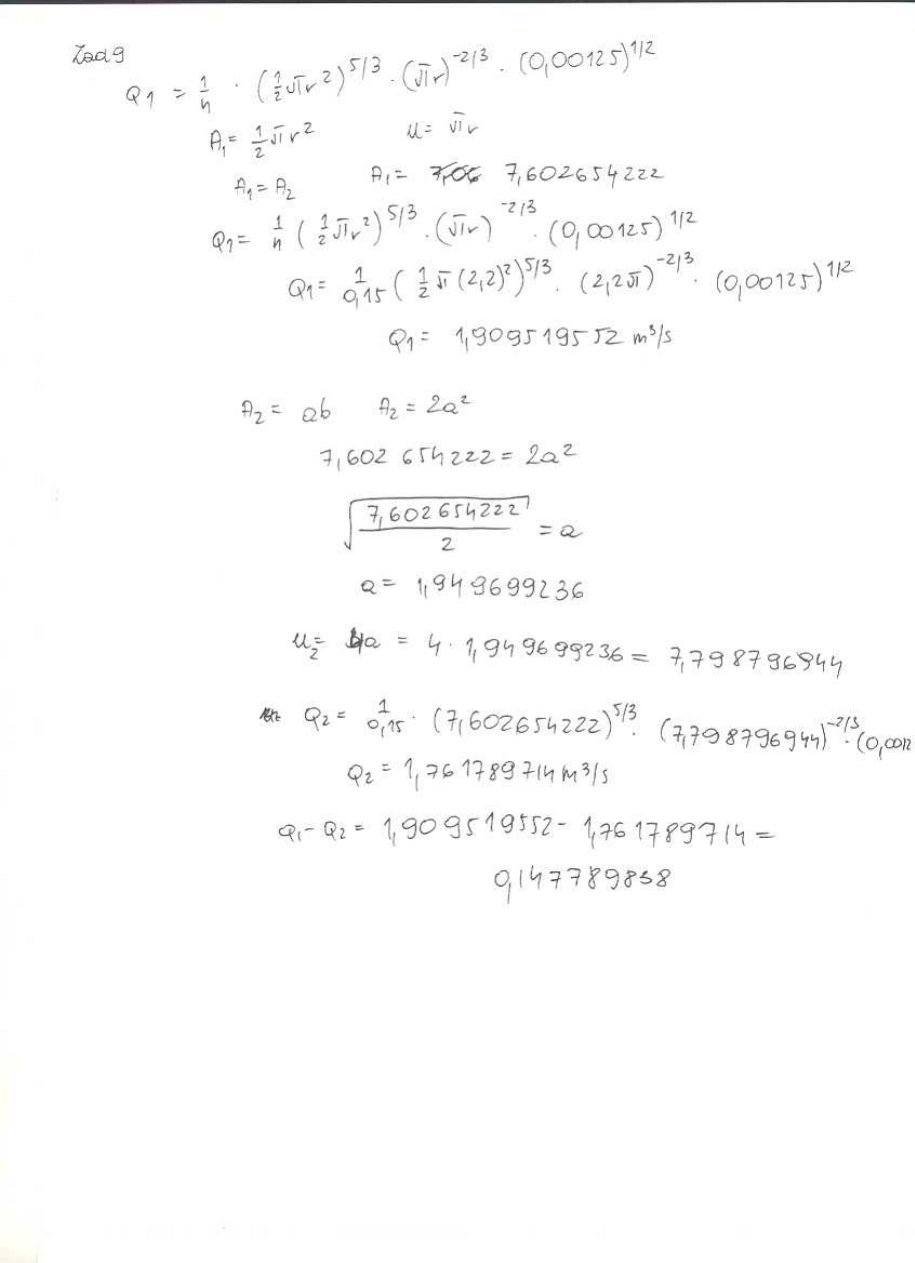 Zad 9
Q1 = 1/n · (1/2 πr²)^5/3 · (πr)^-2/3 · (0,00125)^1/2
A₁ = 1/2 πr² u = πr
A₁ = A₂ A₁ = 7,602654222
Q1 = 1/n (1/2 πr²)^5/3 · (πr)^-2/3 · (0,00125)^1/2
Q1 = 1/0,15 (1/2 π (2,2)²)^5/3 · (2,2π)^-2/3 · (0,00125)^1/2
Q1 = 1,909519552 m³/s
A₂ = ab A₂ = 2a²
7,602 654222 = 2a²
√(7,602654222/2) = a
a = 1,949699236
u₂ = 4a = 4 · 1,949699236 = 7,798796944
Q₂ = 1/0,15 · (7,602654222)^5/3 · (7,798796944)^-2/3 · (0,0012
Q₂ = 1,761789714 m³/s
Q₁ - Q₂ = 1,909519552 - 1,761789714 =
0,147789838